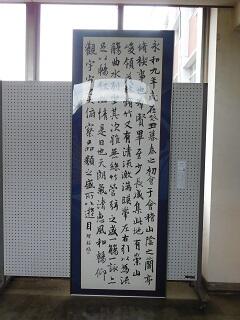 永和九年歲在癸丑暮春之初會于會稽山陰之蘭亭
脩禊事也羣賢畢至少長咸集此地有崇山
峻領茂林脩竹又有清流激湍暎帶左右引以為流
觴曲水列坐其次雖無絲竹管弦之盛一觴一詠亦
足以暢敘幽情是日也天朗氣清惠風和暢仰
觀宇宙之大俯察品類之盛所以遊目